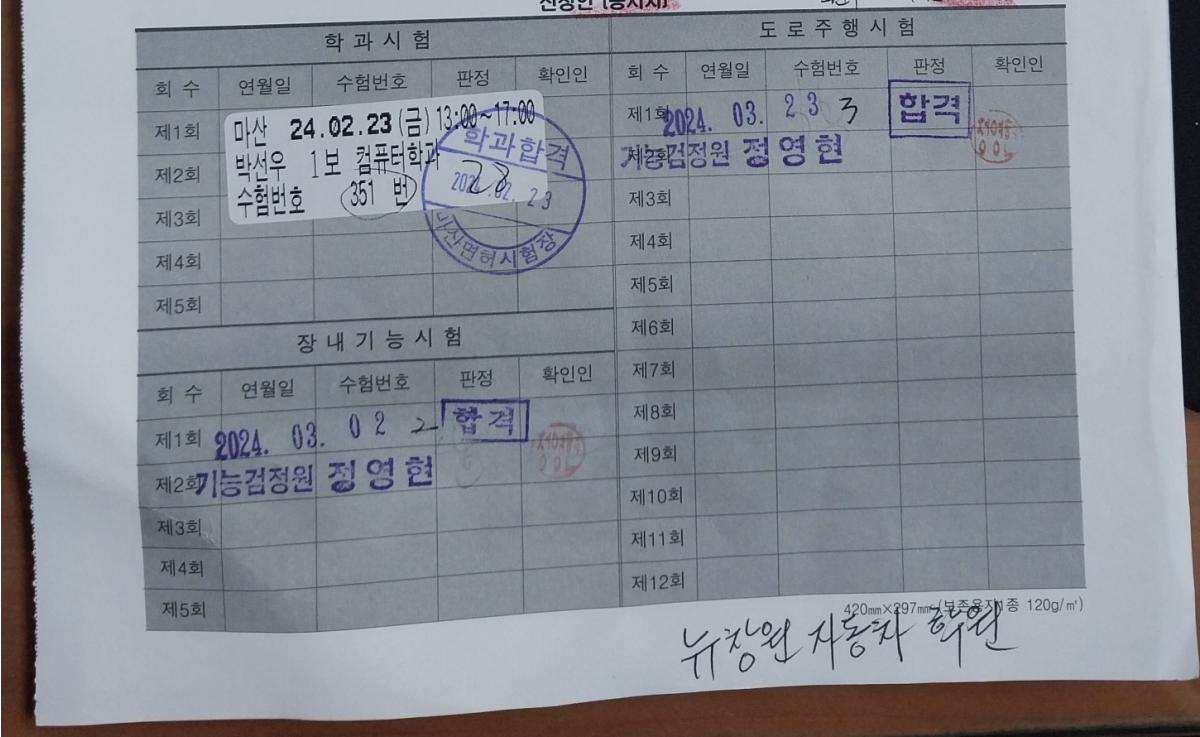 신청인 (응시자)
학 과 시 험
회 수 연월일 수험번호 판정 확인인
제1회
제2회
제3회
제4회
제5회
마산 24.02.23(금) 13:00~17:00
박선우 1보 컴퓨터학과
수험번호 351 번
학과합격
2024.02.23
마산면허시험장
장 내 기 능 시 험
회 수 연월일 수험번호 판정 확인인
제1회 2024. 03. 02 2 합격
제2회 기능검정원 정영현
제3회
제4회
제5회
도 로 주 행 시 험
회 수 연월일 수험번호 판정 확인인
제1회 2024. 03. 23 3 합격
제2회 기능검정원 정영현
제3회
제4회
제5회
제6회
제7회
제8회
제9회
제10회
제11회
제12회
420㎜×297㎜(보존용지1종 120g/㎡)
뉴창원 자동차 학원